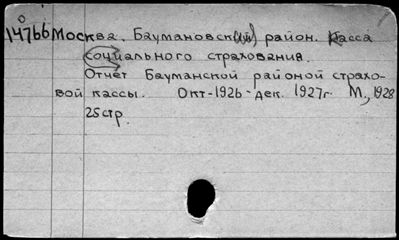 О
14766 Москва. Баумановск(ий) район. Касса
социального страхования.
Отчет Бауманской районой страхо-
вой кассы. Окт-1926-дек. 1927г. М., 1928
25 стр.